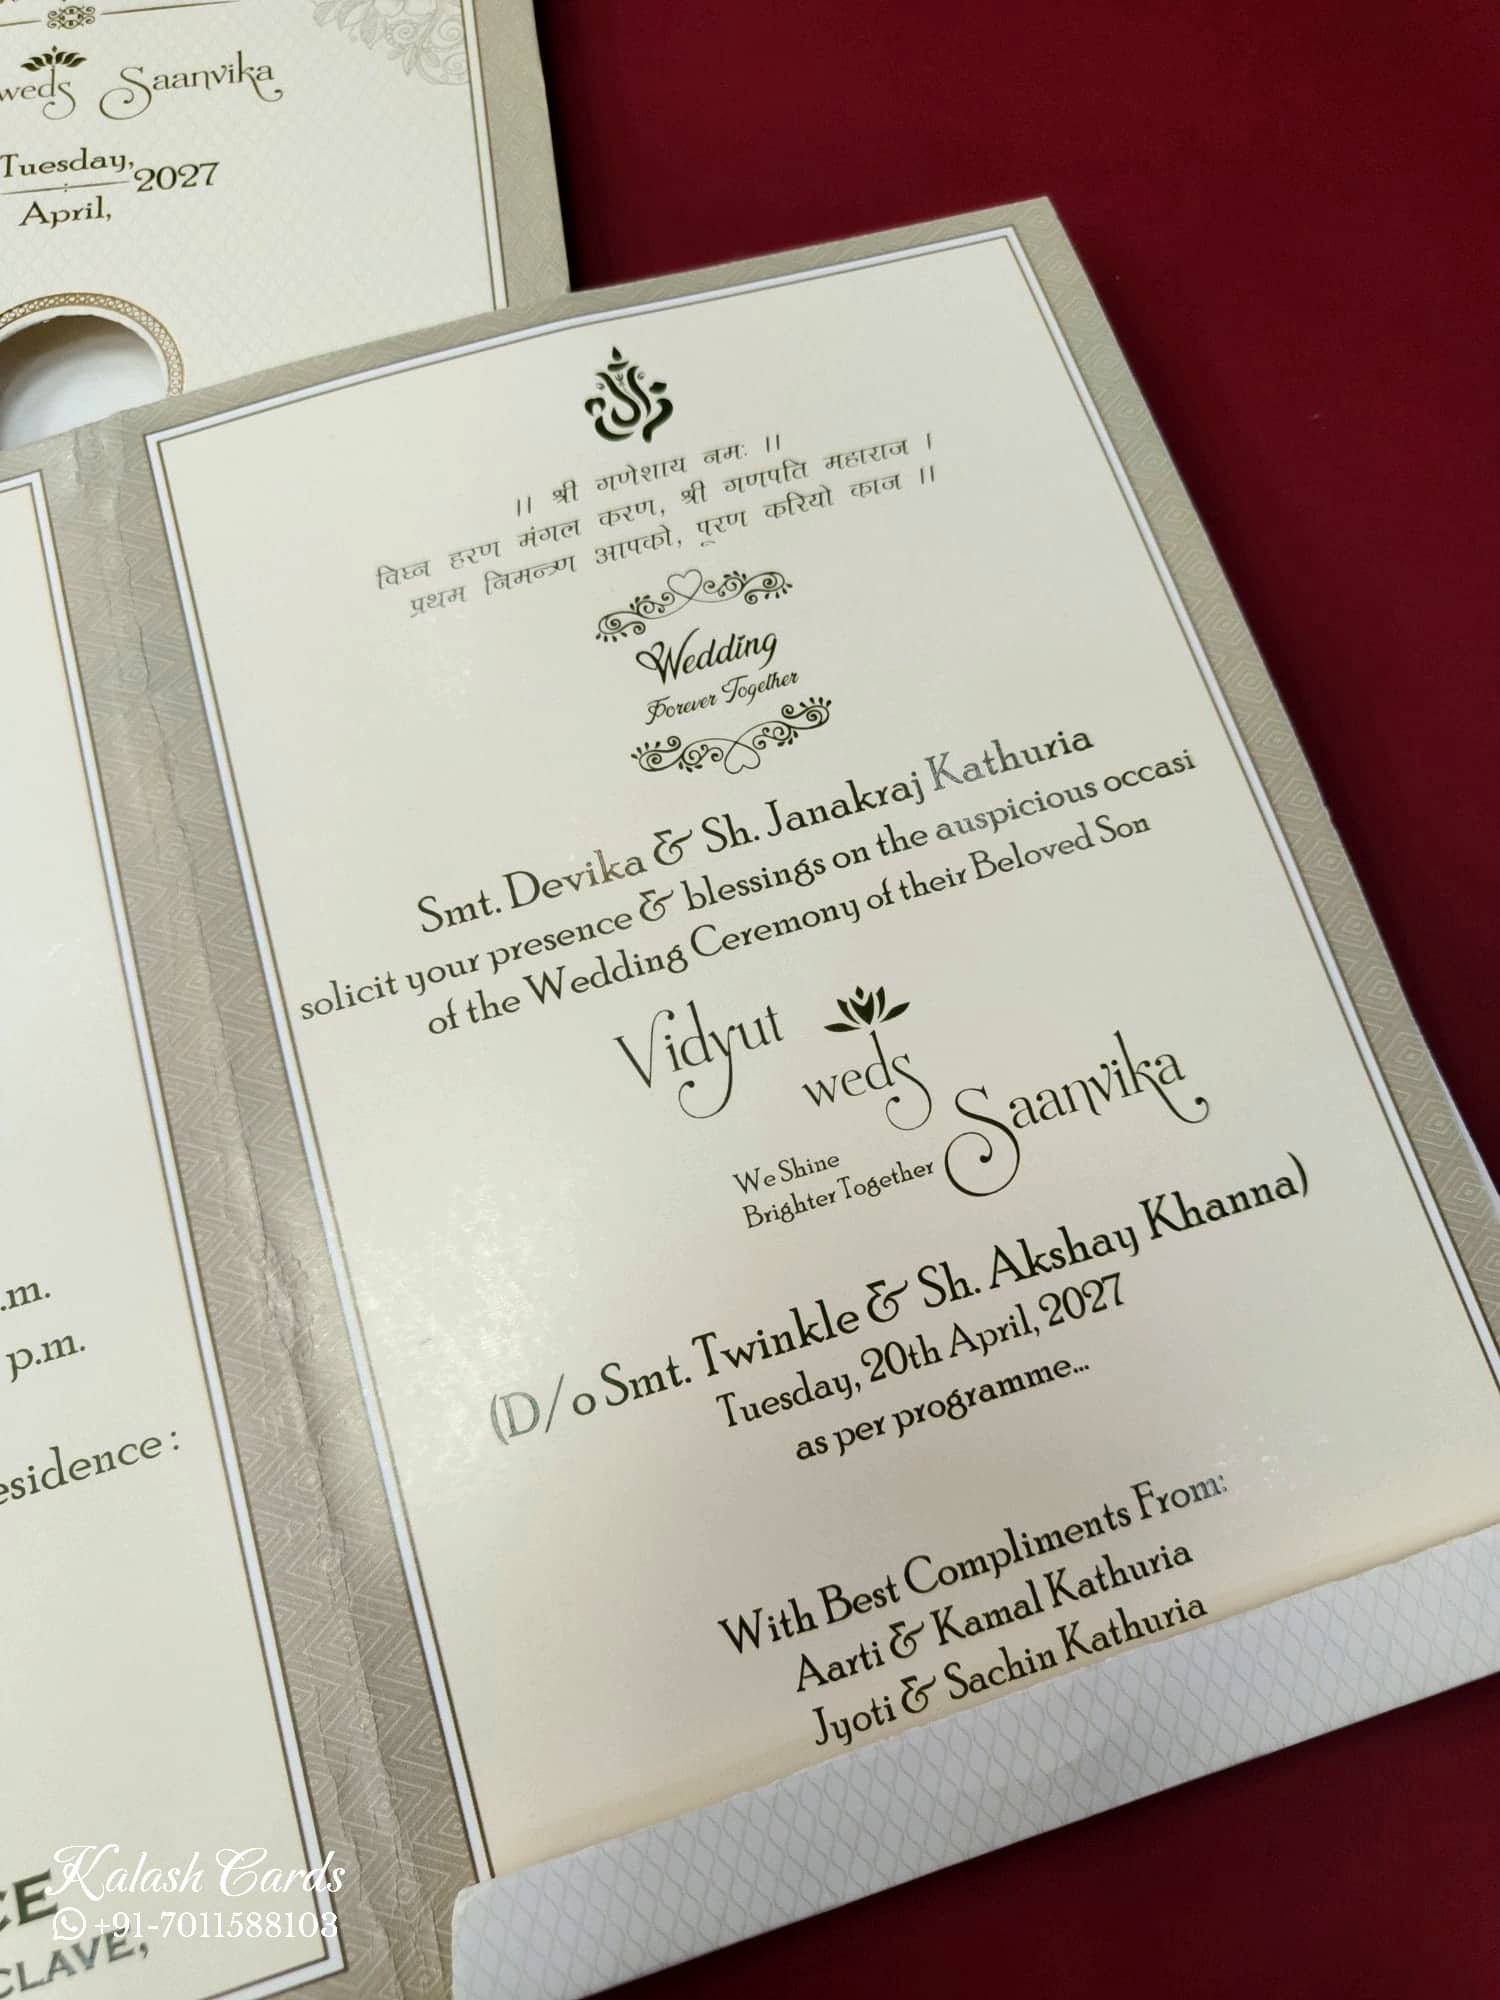 weds Saanvika
Tuesday,
2027
April,
।। श्री गणेशाय नमः ।।
विघ्न हरण मंगल करण, श्री गणपति महाराज ।
प्रथम निमन्त्रण आपको, पूरण करियो काज ।।
Wedding
Forever Together
Smt. Devika & Sh. Janakraj Kathuria
solicit your presence & blessings on the auspicious occasi
of the Wedding Ceremony of their Beloved Son
Vidyut
weds
Saanvika
We Shine
Brighter Together
(D/o Smt. Twinkle & Sh. Akshay Khanna)
Tuesday, 20th April, 2027
as per programme...
With Best Compliments From:
Aarti & Kamal Kathuria
Jyoti & Sachin Kathuria
.m.
p.m.
esidence :
CE
CLAVE,
Kalash Cards
+91-7011588103